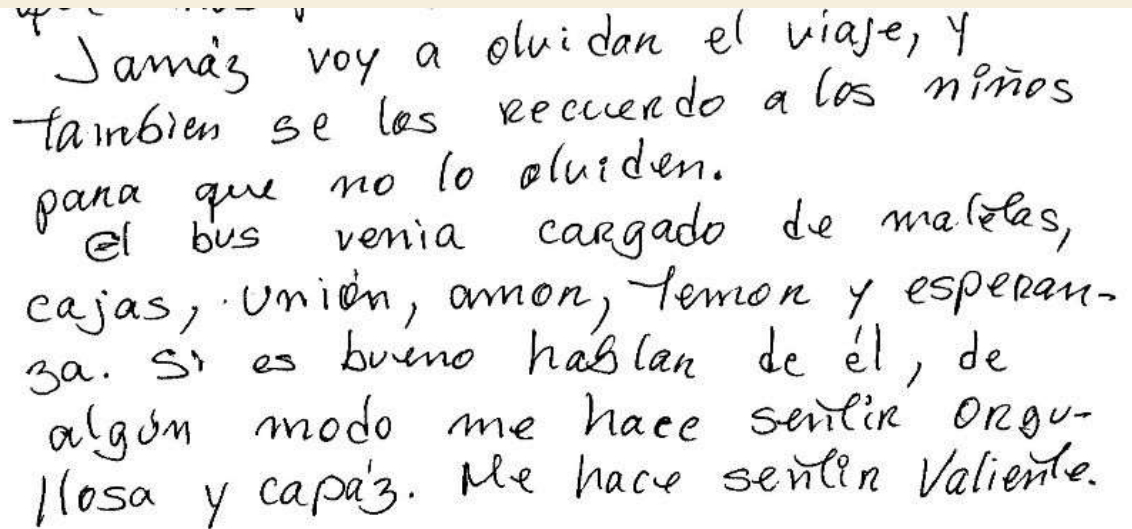 Jamás voy a olvidar el viaje, y
tambien se los recuerdo a los niños
para que no lo olviden.
El bus venia cargado de maletas,
cajas, unión, amor, temor y esperan-
za. Si es bueno hablar de él, de
algún modo me hace sentir orgu-
llosa y capáz. Me hace sentir Valiente.